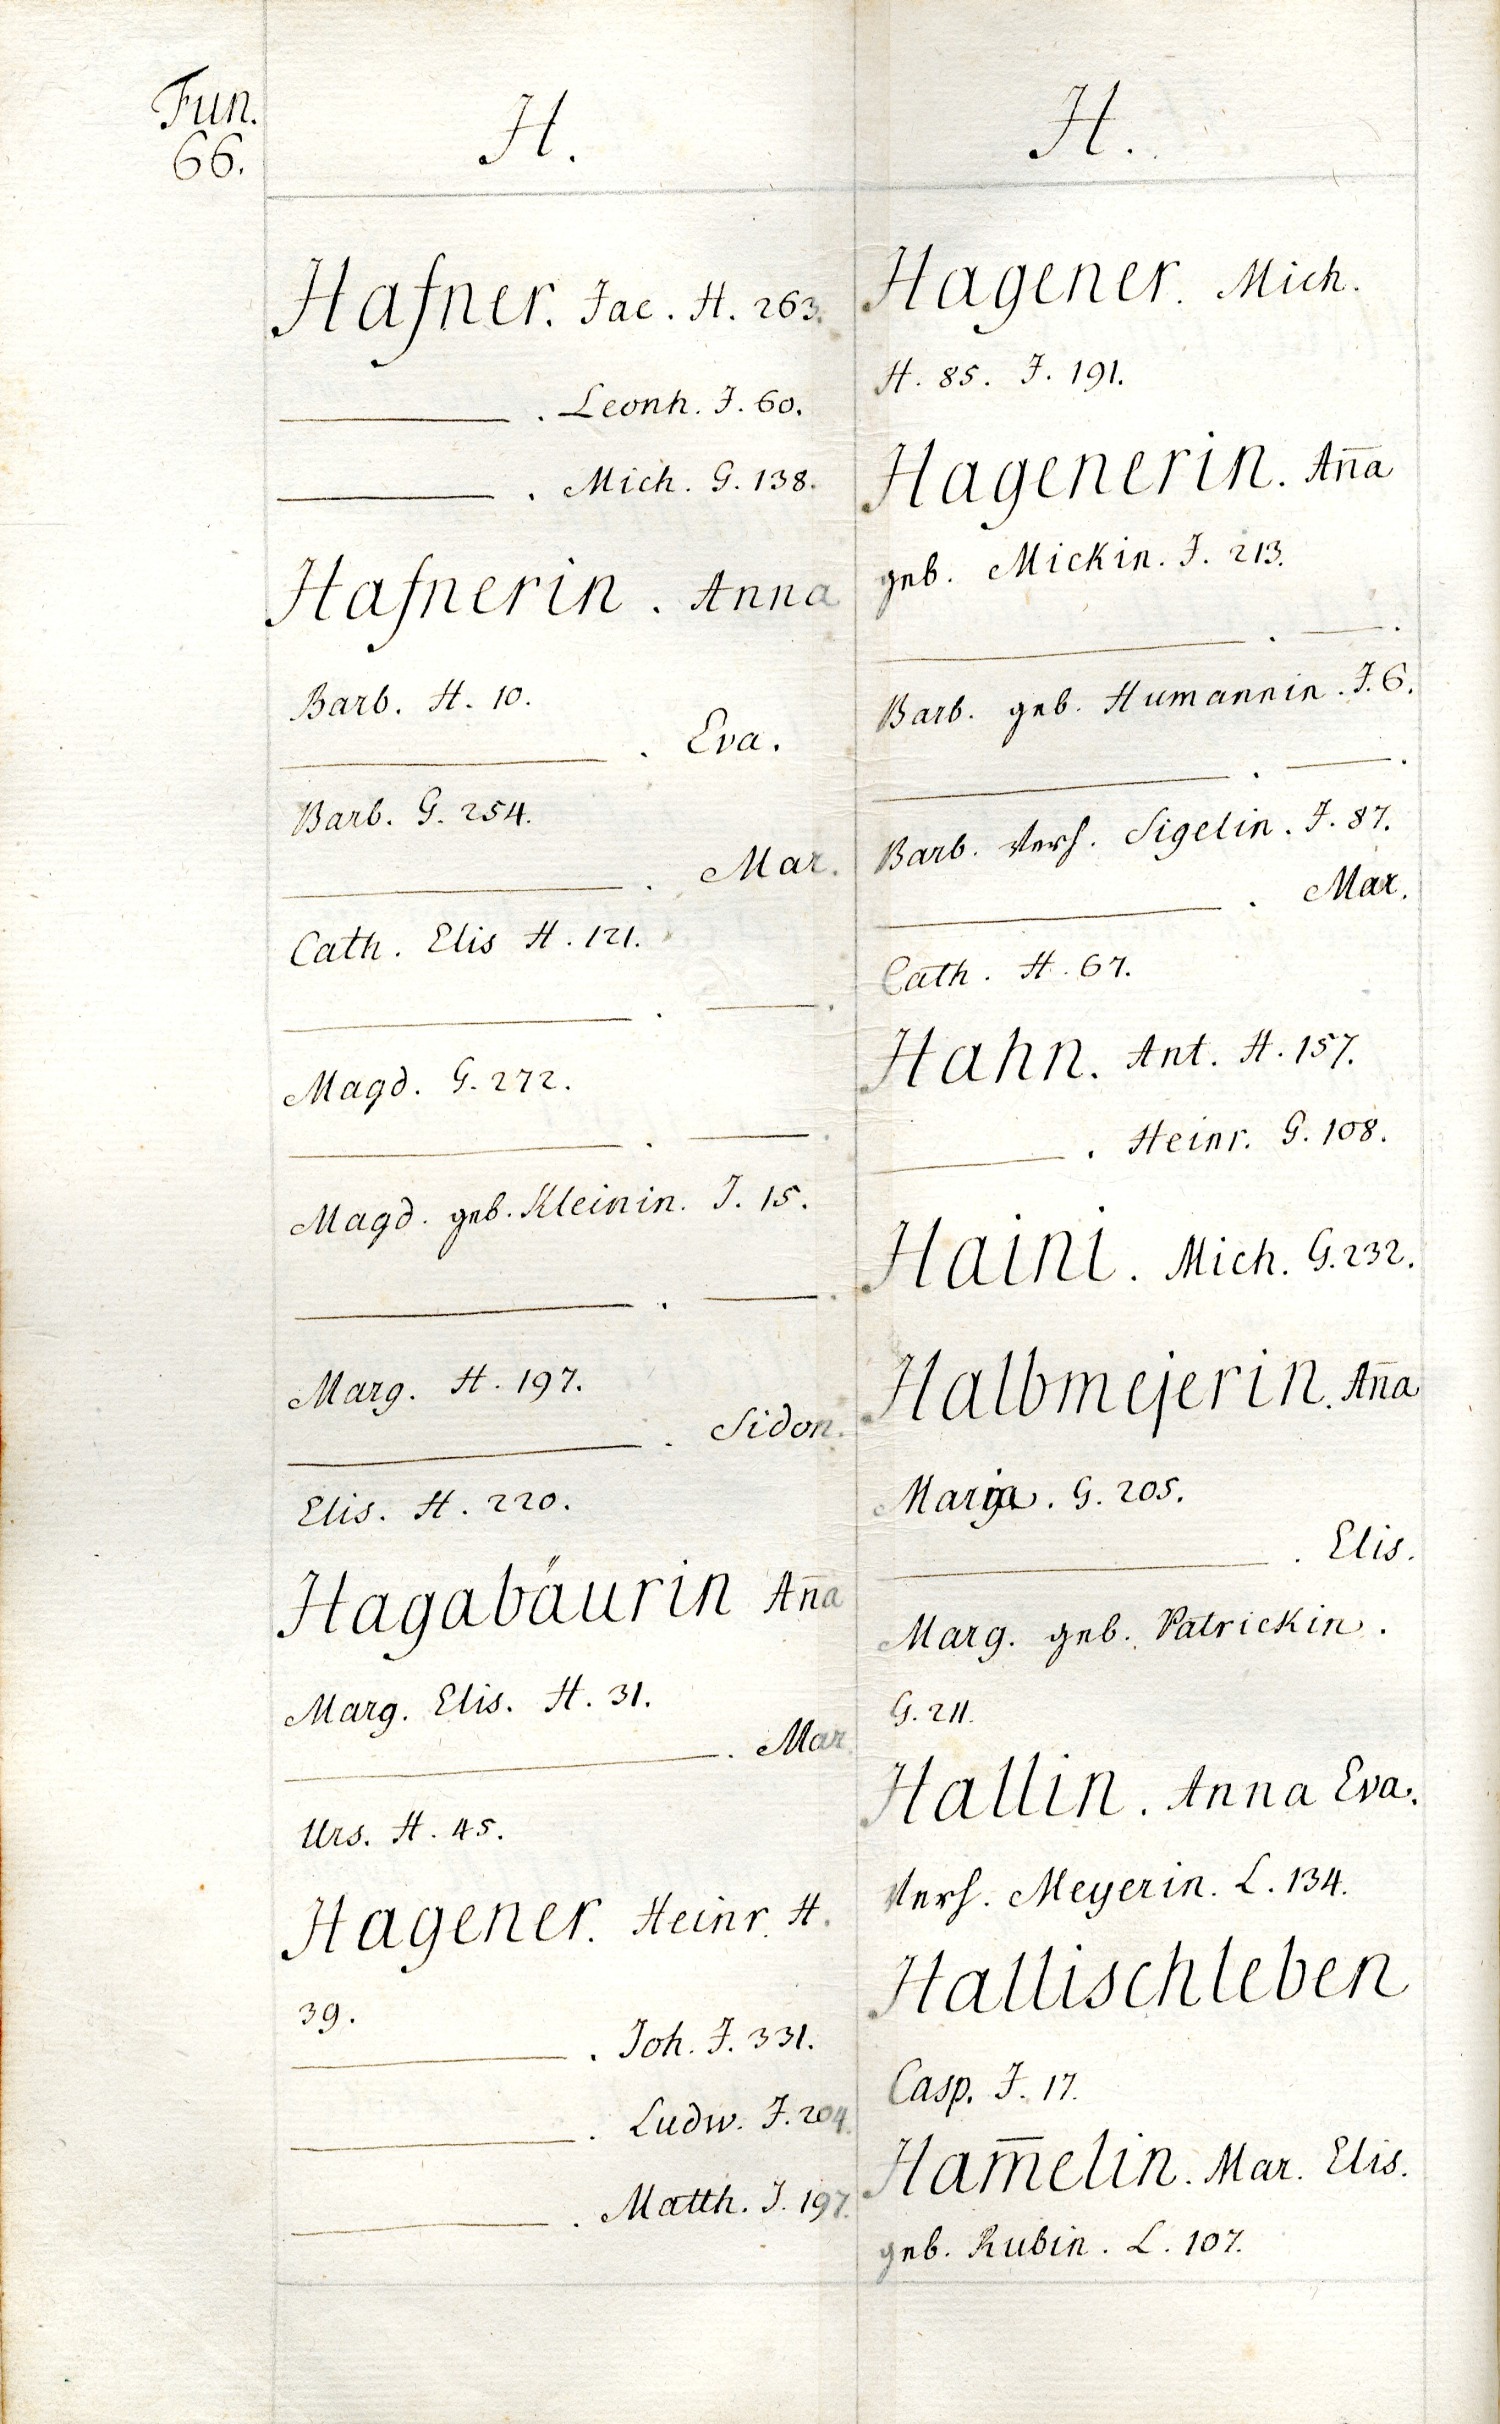 Fun.
66.
H.
Hafner. Jac. H. 263.
———. Leonh. J. 60.
———. Mich. G. 138.
Hafnerin. Anna
Barb. H. 10.
———. Eva.
Barb. G. 254.
———. Mar.
Cath. Elis H. 121.
———. ———.
Magd. G. 272.
———. ———.
Magd. geb. Kleinin. J. 15.
———. ———.
Marg. H. 197.
———. Sidon.
Elis. H. 220.
Hagabäurin An̄a
Marg. Elis. H. 31.
———. Mar
Urs. H. 45.
Hagener. Heinr. H.
39.
———. Joh. J. 331.
———. Ludw. J. 204.
———. Matth. J. 197.
H.
Hagener. Mich.
H. 85. J. 191.
Hagenerin. An̄a
geb. Mickin. J. 213.
———. ———.
Barb. geb. Humannin. J. 6.
———. ———.
Barb. Verh. Sigelin. J. 87.
———. Mar.
Cath. H. 67.
Hahn. Ant. H. 157.
———. Heinr. G. 108.
Haini. Mich. G. 232.
Halbmejerin. An̄a
Maria. G. 205.
———. Elis.
Marg. geb. Patrickin.
G. 211.
Hallin. Anna Eva.
Verh. Meyerin. L. 134.
Hallischleben
Casp. J. 17.
Ham̄elin. Mar. Elis.
geb. Rubin. L. 107.